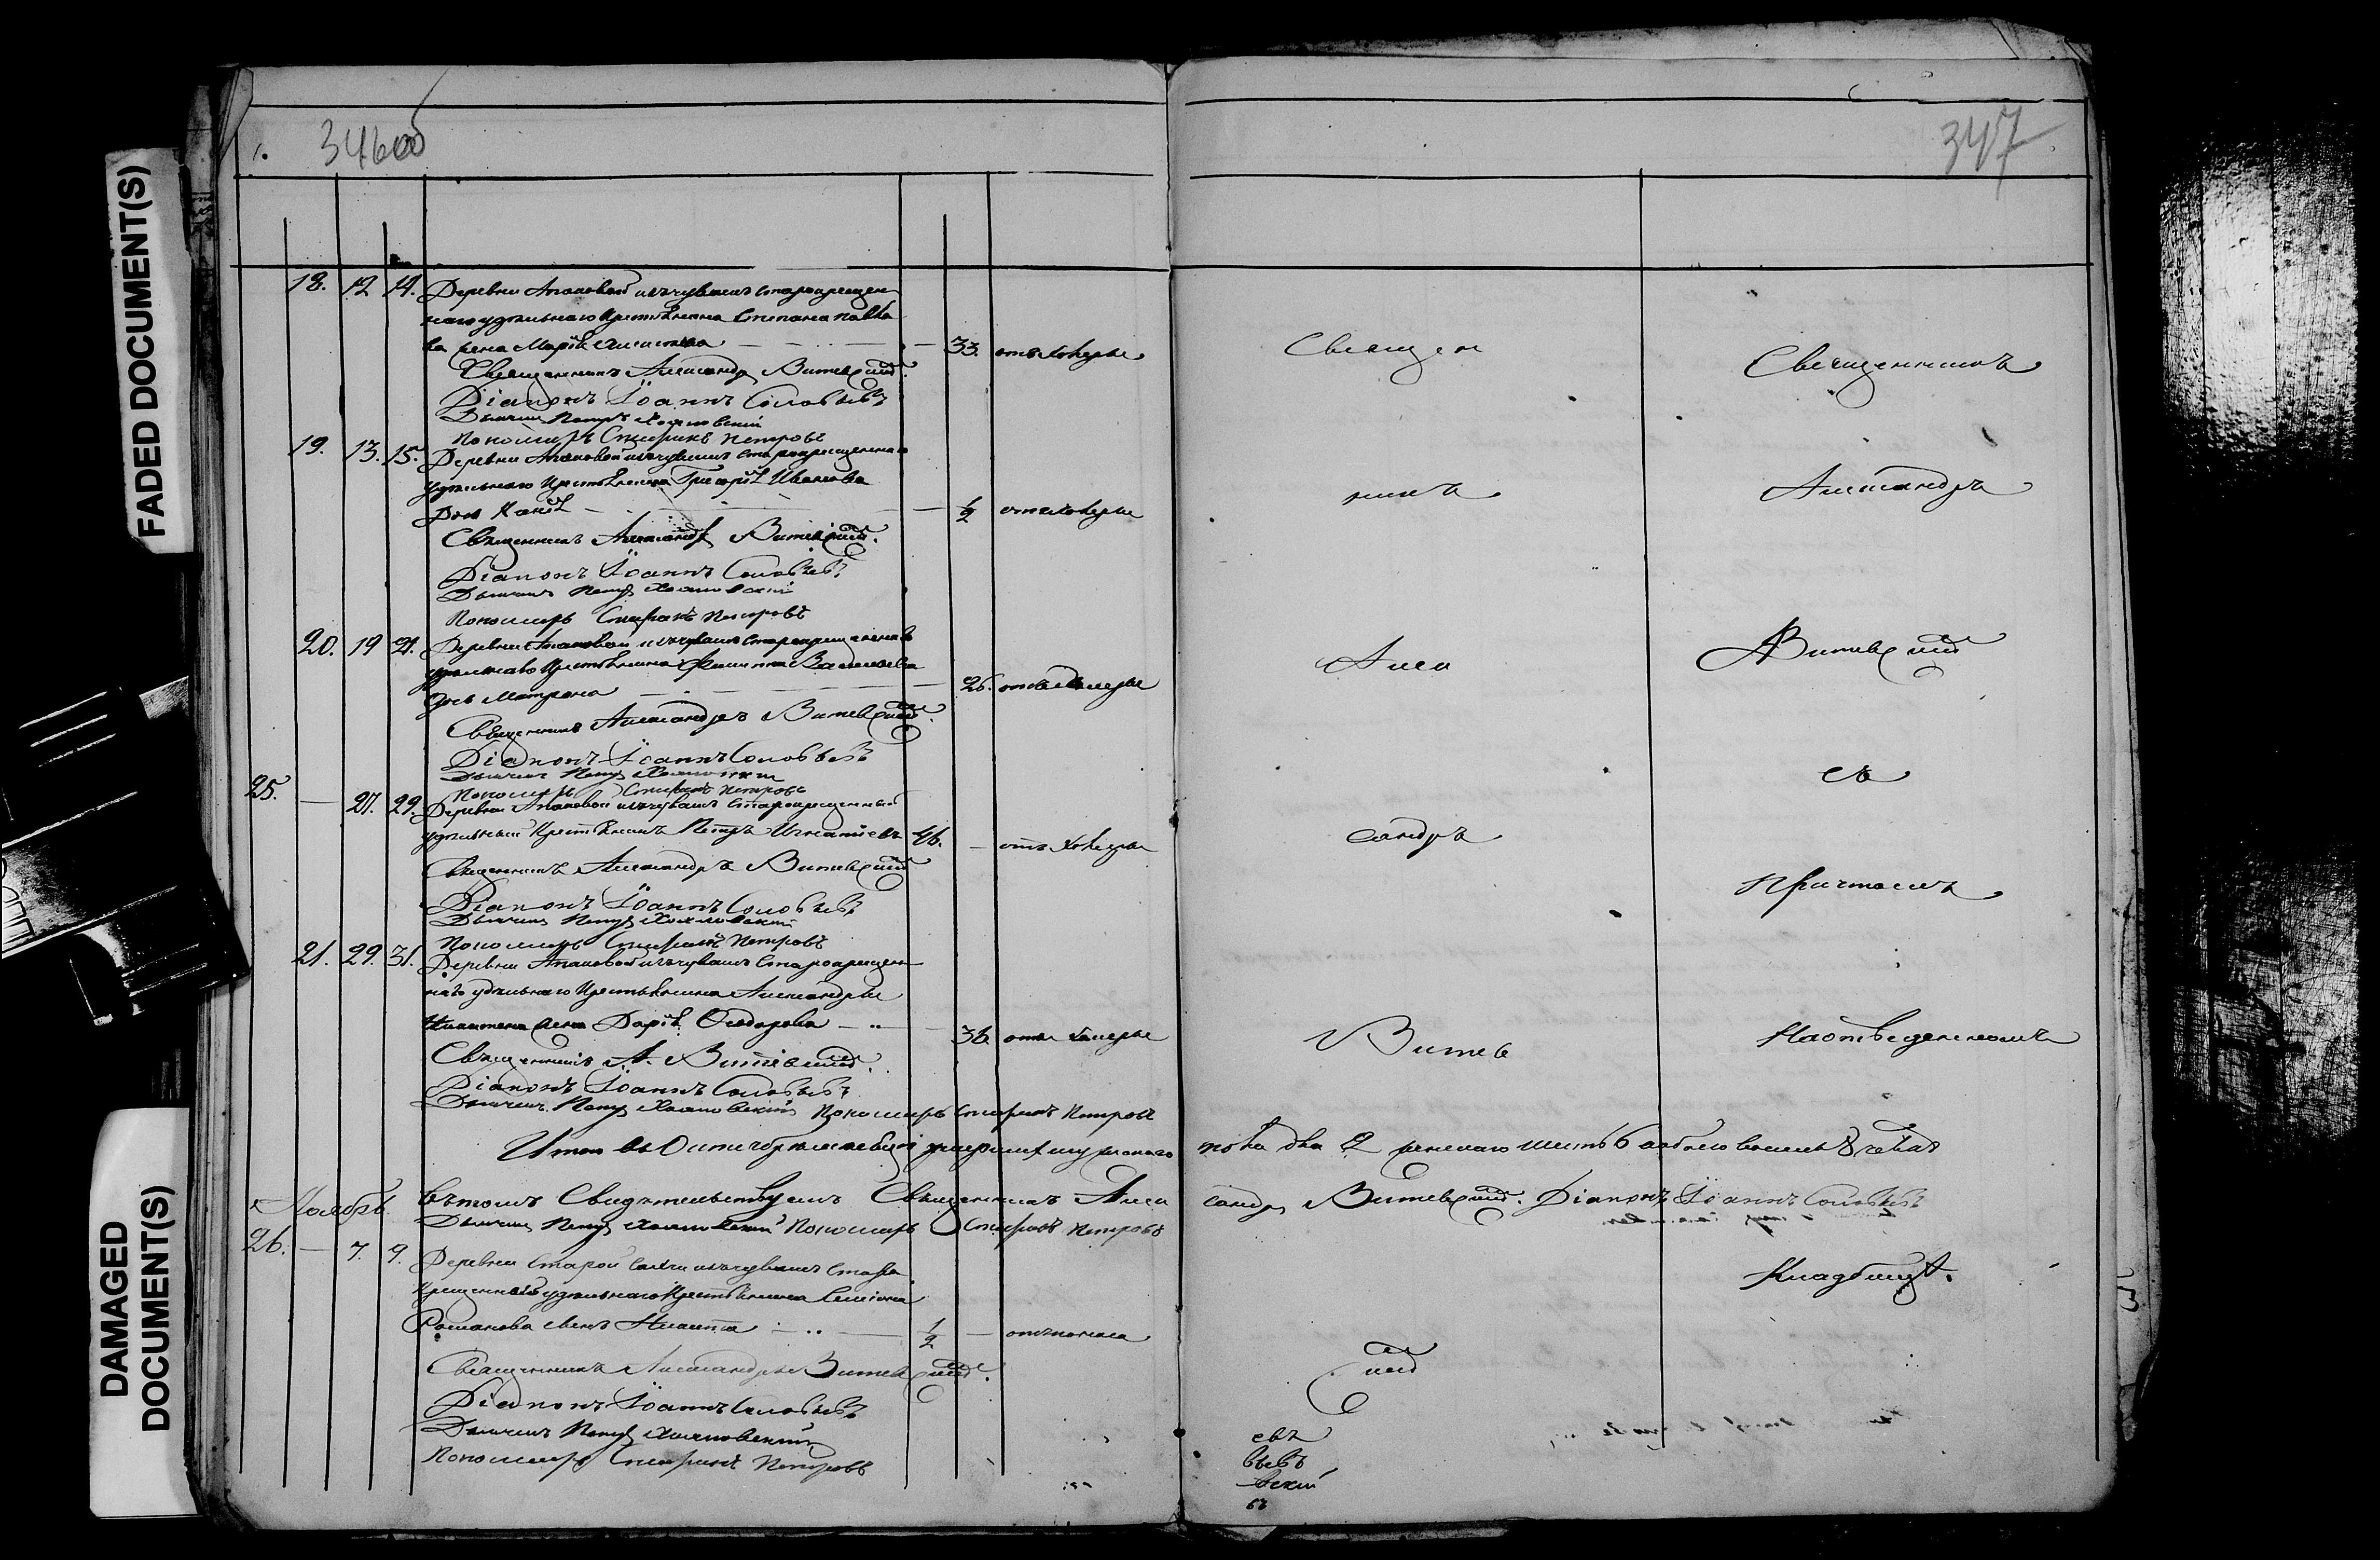 FADED DOCUMENT(S)
DAMAGED
DOCUMENT(S)
346об
347
18. 12 14. Деревни Апаковой изъ чувашъ старокрещен
наго удѣльнаго крестьянина Степана Павло
ва жена Марія 33. отъ холеры
Священникъ Александръ Витевскій
Діаконъ Іоаннъ Соловьевъ
Дьячекъ Петръ
Пономарь Спиридонъ Петровъ
19. 13. 15. Деревни Апаковой изъ чувашъ старокрещеннаго
удѣльнаго крестьянина Григорія Иванова
дочь 1/2 отъ холеры
Священникъ Александръ Витевскій.
Діаконъ Іоаннъ Соловьевъ
Дьячекъ Петръ
Пономарь Спиридонъ Петровъ
20. 19 21. Деревни Апаковой изъ чувашъ старокрещеннаго
удѣльнаго крестьянина Филиппа Васильева
дочь Матрона 26. отъ холеры
Священникъ Александръ Витевскій.
Діаконъ Іоаннъ Соловьевъ
Дьячекъ Петръ
Пономарь Спиридонъ Петровъ
25. — 27. 29. Деревни Апаковой изъ чувашъ старокрещенный
удѣльный крестьянинъ Петръ Игнатьевъ 46. — отъ холеры
Священникъ Александръ Витевскій
Діаконъ Іоаннъ Соловьевъ
Дьячекъ Петръ
Пономарь Спиридонъ Петровъ
21. 29. 31. Деревни Апаковой изъ чувашъ старокрещен
наго удѣльнаго крестьянина Александра
Никитина жена Дарія Ѳедорова 36 отъ холеры
Священникъ А. Витевскій.
Діаконъ Іоаннъ Соловьевъ
Дьячекъ Петръ Пономарь Спиридонъ Петровъ
Итого въ Октябрѣ мѣсяцѣ умершихъ мужескаго
пола два 2 женскаго шесть 6 обоего восемь 8 человѣкъ
Ноябрь. Въ томъ свидѣтельствуемъ Священникъ Алек
сандръ Витевскій. Діаконъ Іоаннъ Соловьевъ
Дьячекъ Петръ Пономарь Спиридонъ Петровъ
26. — 7. 9. Деревни Старой изъ чувашъ старо
крещеннаго удѣльнаго крестьянина Симеона
Романова сынъ Никита 1/2 — отъ поноса
Священникъ Александръ Витевскій.
Діаконъ Іоаннъ Соловьевъ
Дьячекъ Петръ
Пономарь Спиридонъ Петровъ
Священ
никъ
Алек
сандръ
Витев
скій
евъ
вьевъ
вскій
въ
Священникъ
Александръ
Витевскій
съ
Причтомъ
На отведенномъ
Кладбищѣ.